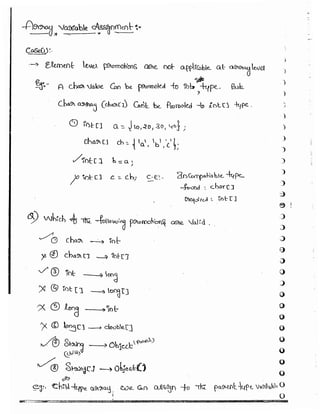 Array Variable Assignment :-
Case(1):-
→ Element level promotions are not applicable at array level
Eg:- A char value can be promoted to int type. But
char array (char[]) can't be promoted to int[] type.
① int[] a = {10, 20, 30, 40};
char[] ch = {'a', 'b', 'c'};
✓ int[] b = a;
✗ int[] c = ch; C.E:- Incompatible type
found : char[]
required : int[]
Q) Which of the following promotions are valid.
✓ ① char → int
✗ ② char[] → int[]
✓ ③ int → long
✗ ④ int[] → long[]
✗ ⑤ long → int
✗ ⑥ long[] → double[]
✓ ⑦ String → Object (Parent)
(child)
✓ ⑧ String[] → Object[]
eg:- Child type array, we can assign to the parent type variable